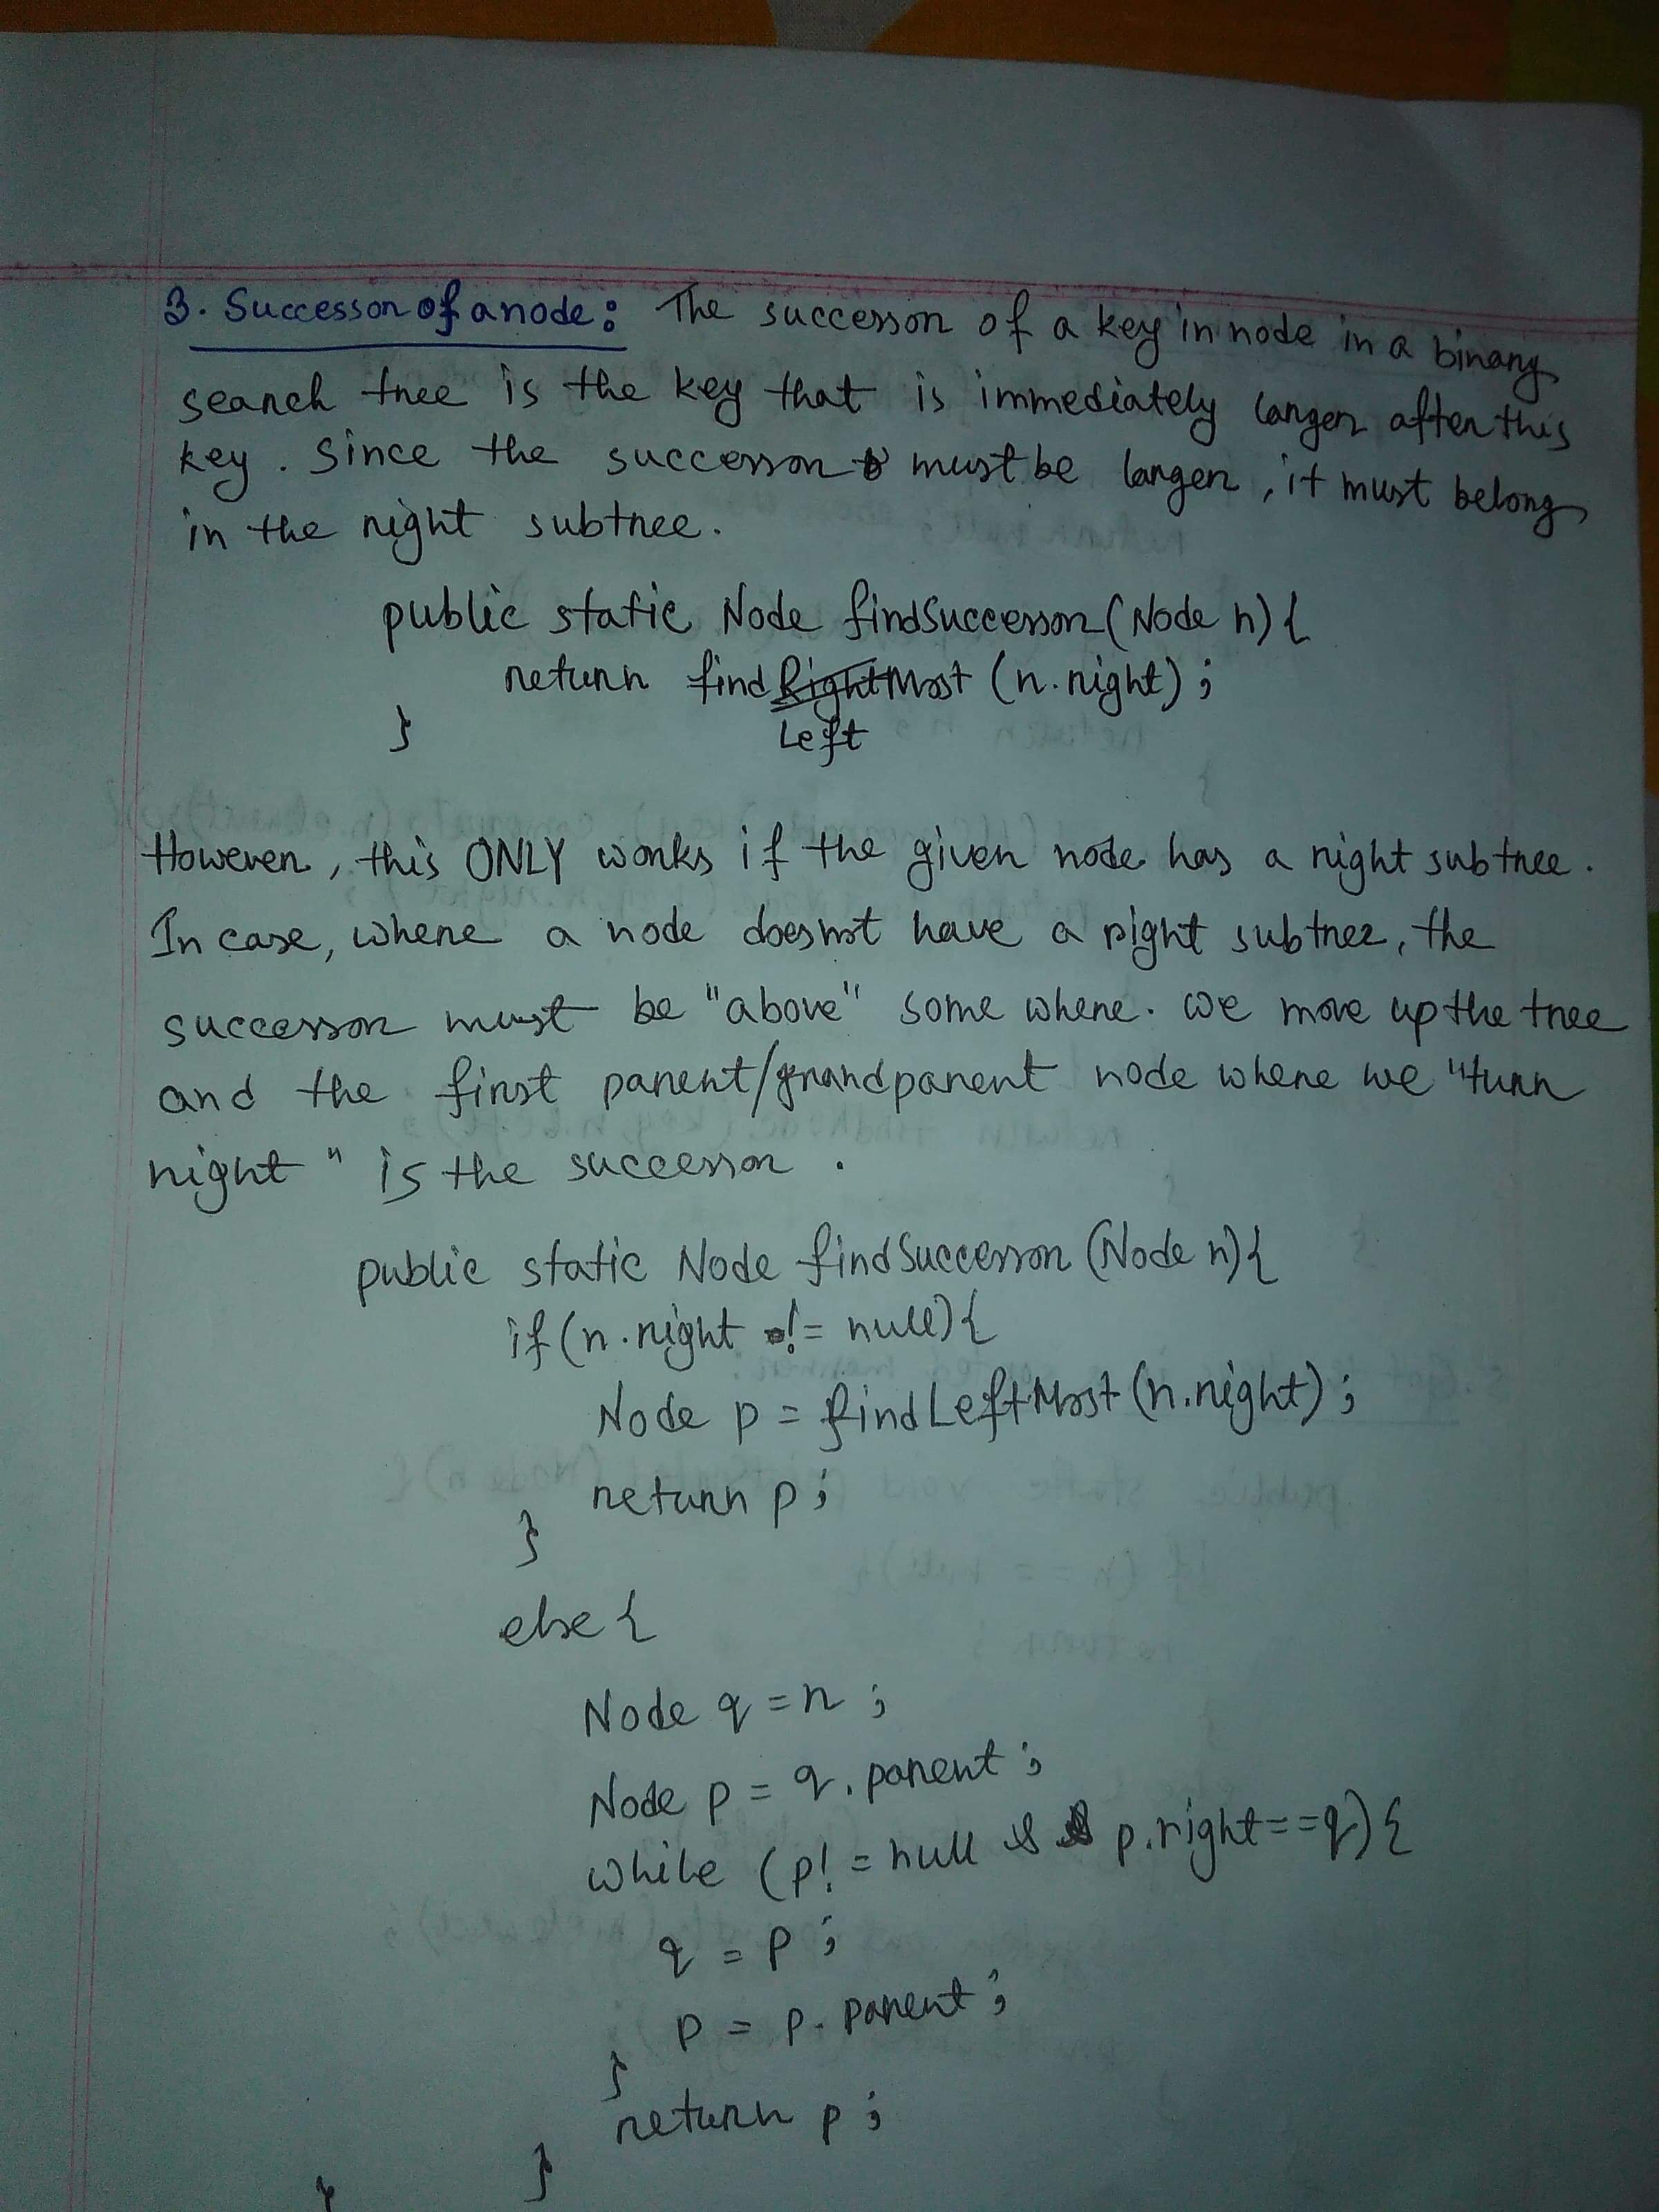 3. Successor of a node: The successor of a key in node in a binary
search tree is the key that is immediately larger after this
key. Since the successor must be larger, it must belong
in the right subtree.
public static Node findSuccessor(Node n){
return findRightMost (n.right);
}
Left
However, this ONLY works if the given node has a right subtree.
In case, where a node doesnot have a right subtree, the
successor must be "above" some where. We move up the tree
and the first parent/grandparent node where we "turn
right" is the successor.
public static Node findSuccessor (Node n){
if (n.right != null){
Node p = findLeftMost (n.right);
return p;
}
else {
Node q = n;
Node p = q.parent;
while (p! = null && p.right==q){
q = p;
p = p.parent;
}
return p;
}
}